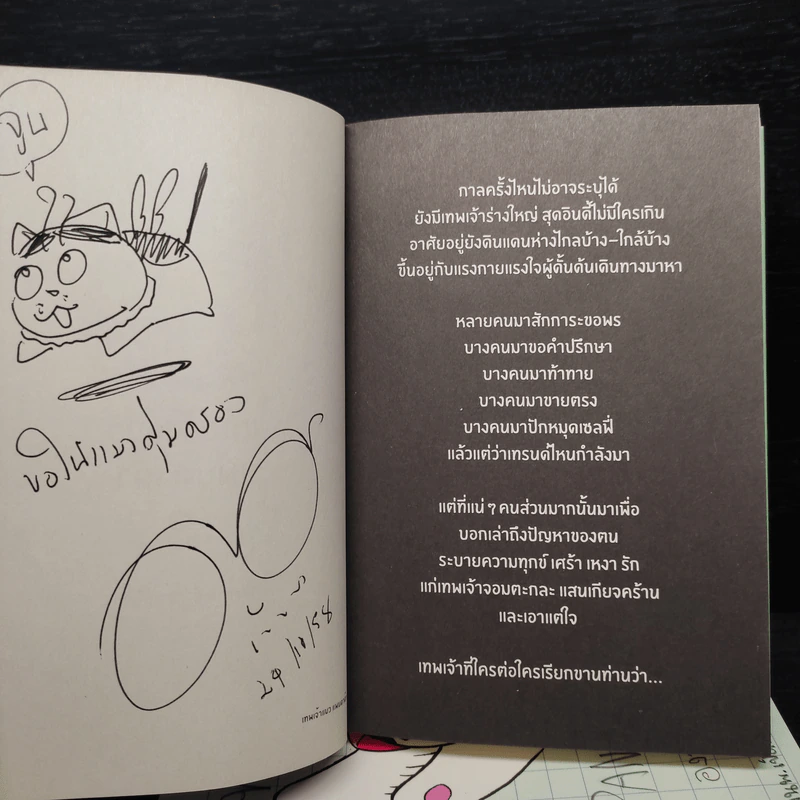 จูน
ขอให้แมวคุ้มครอง
กาลครั้งไหนไม่อาจระบุได้
ยังมีเทพเจ้าร่างใหญ่ สุดอินดี้ไม่มีใครเกิน
อาศัยอยู่ยังดินแดนห่างไกลบ้าง–ใกล้บ้าง
ขึ้นอยู่กับแรงกายแรงใจผู้ดั้นด้นเดินทางมาหา
หลายคนมาสักการะขอพร
บางคนมาขอคำปรึกษา
บางคนมาท้าทาย
บางคนมาขายตรง
บางคนมาปักหมุดเซลฟี่
แล้วแต่ว่าเทรนด์ไหนกำลังมา
แต่ที่แน่ ๆ คนส่วนมากนั้นมาเพื่อ
บอกเล่าถึงปัญหาของตน
ระบายความทุกข์ เศร้า เหงา รัก
แก่เทพเจ้าจอมตะกละ แสนเกียจคร้าน
และเอาแต่ใจ
เทพเจ้าที่ใครต่อใครเรียกขานท่านว่า...
เทพเจ้าแมว